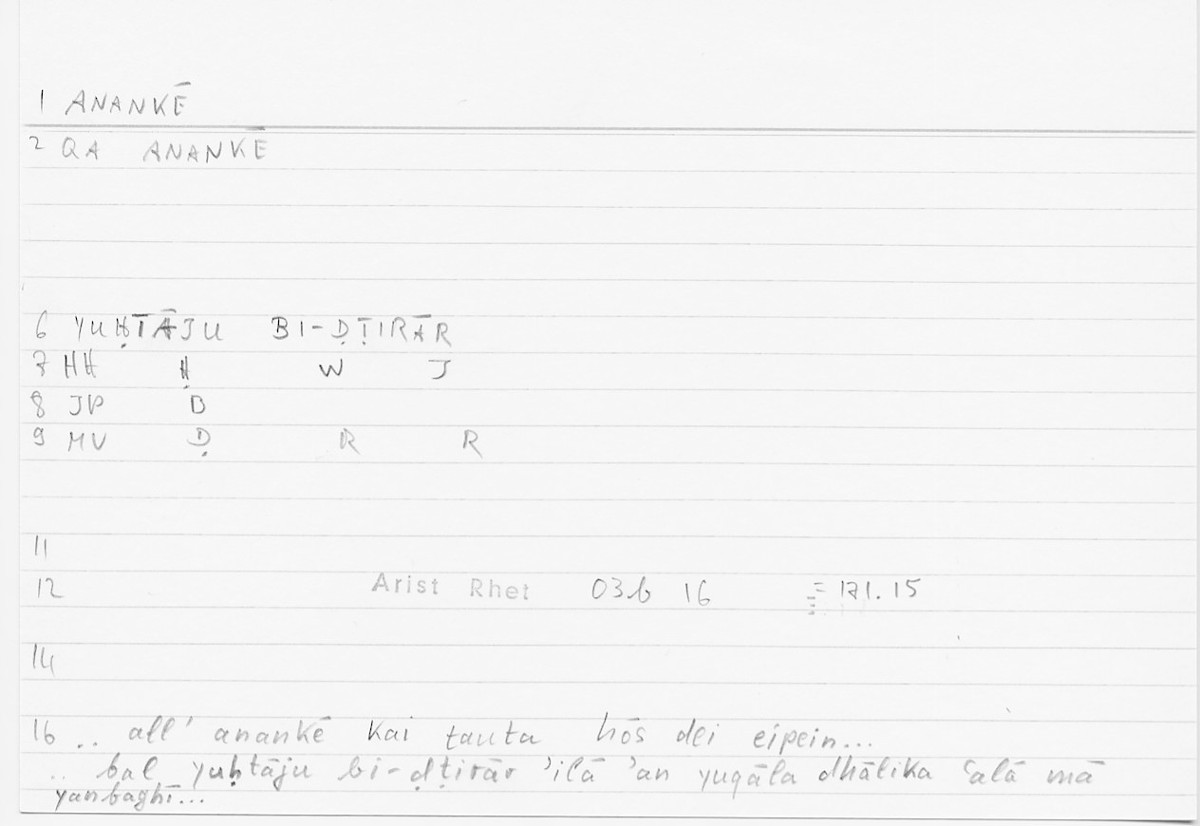 1 ANANKĒ
2 QA ANANKĒ
6 YUḤTĀJU BI-ḌṬIRĀR
7 HH Ḥ W J
8 JP B
9 MV Ḍ R R
11
12 Arist Rhet 03b 16 = 171.15
14
16 .. all' anankē kai tauta hōs dei eipein...
.. bal yuḥtāju bi-ḍṭirār 'ilā 'an yuqāla dhālika ʿalā mā
yanbaghī...